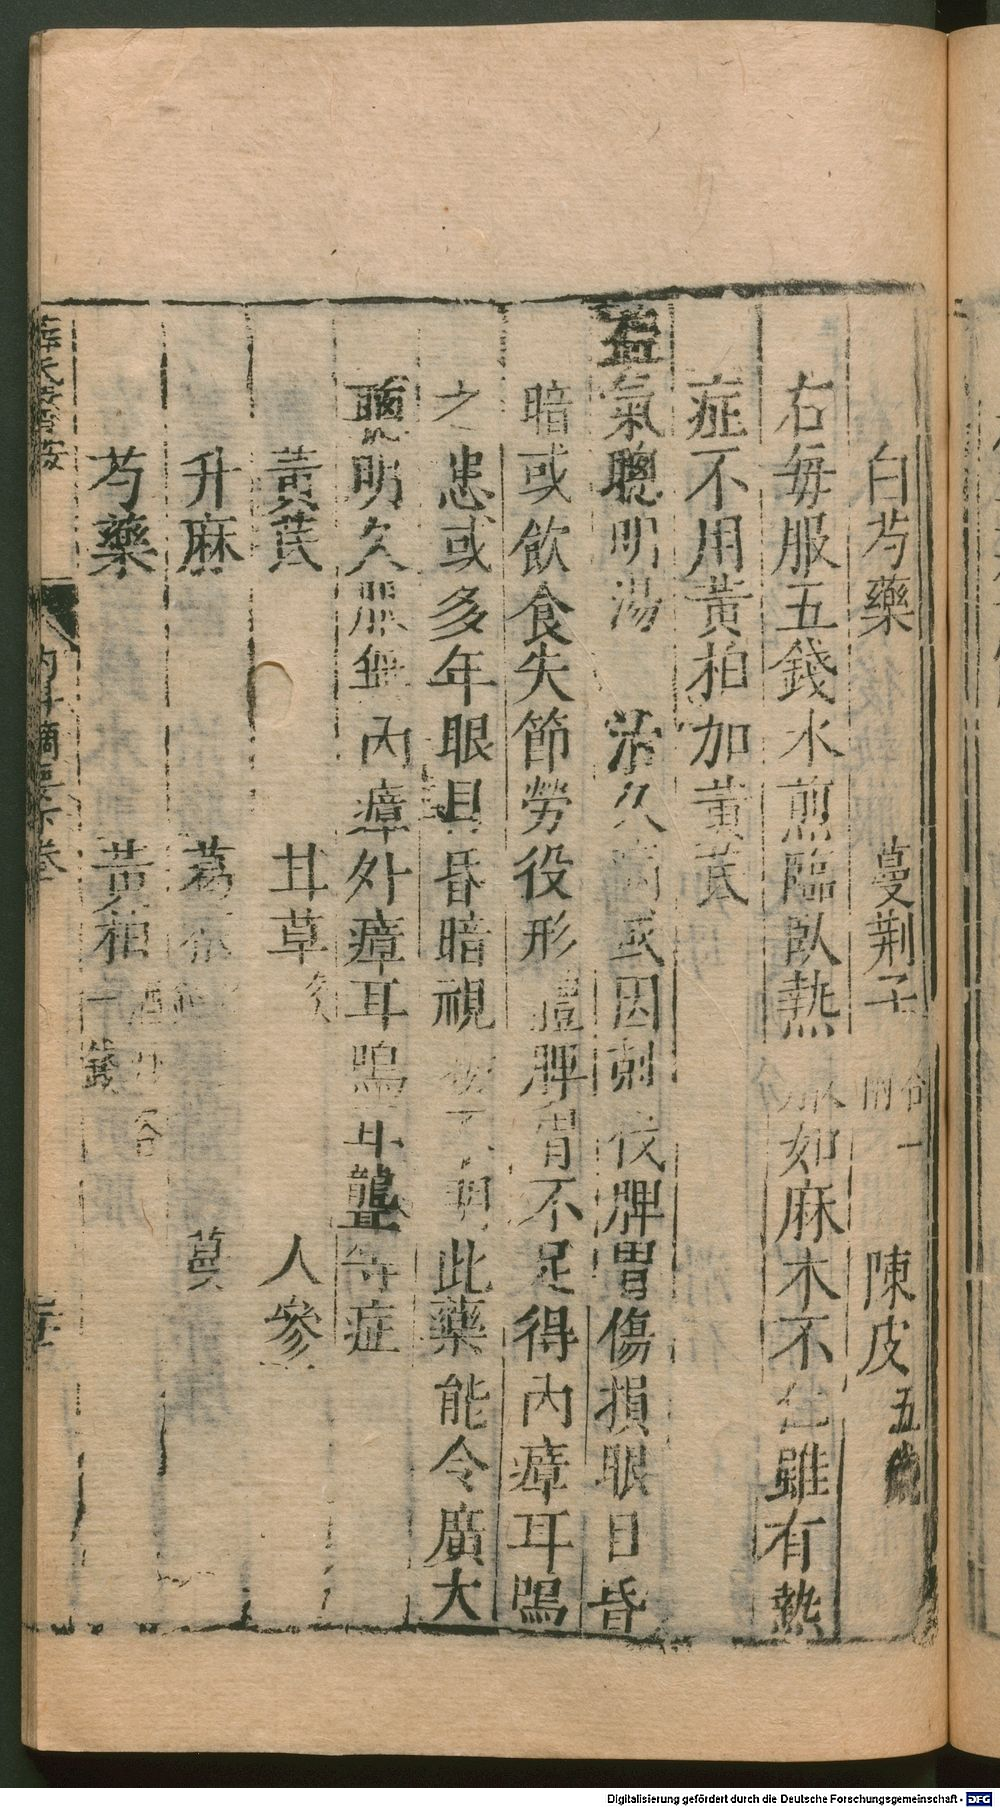 白芍藥 蔓荆子 陳皮五
右每服五錢水煎臨臥熱 如麻木不 雖有熱
症不用黃柏加黃芪
益氣聰明湯 治久 或因剋伐脾胃傷損眼目昏
暗或飲食失節勞役形體脾胃不足得內瘴耳鳴
之患或多年眼目昏暗視 明此藥能令廣大
聰明久服無內瘴外瘴耳鳴耳聾等症
黃芪 甘草 人參
升麻 葛
芍藥 黃柏一錢酒
內科摘要下卷
Digitalisierung gefördert durch die Deutsche Forschungsgemeinschaft - DFG